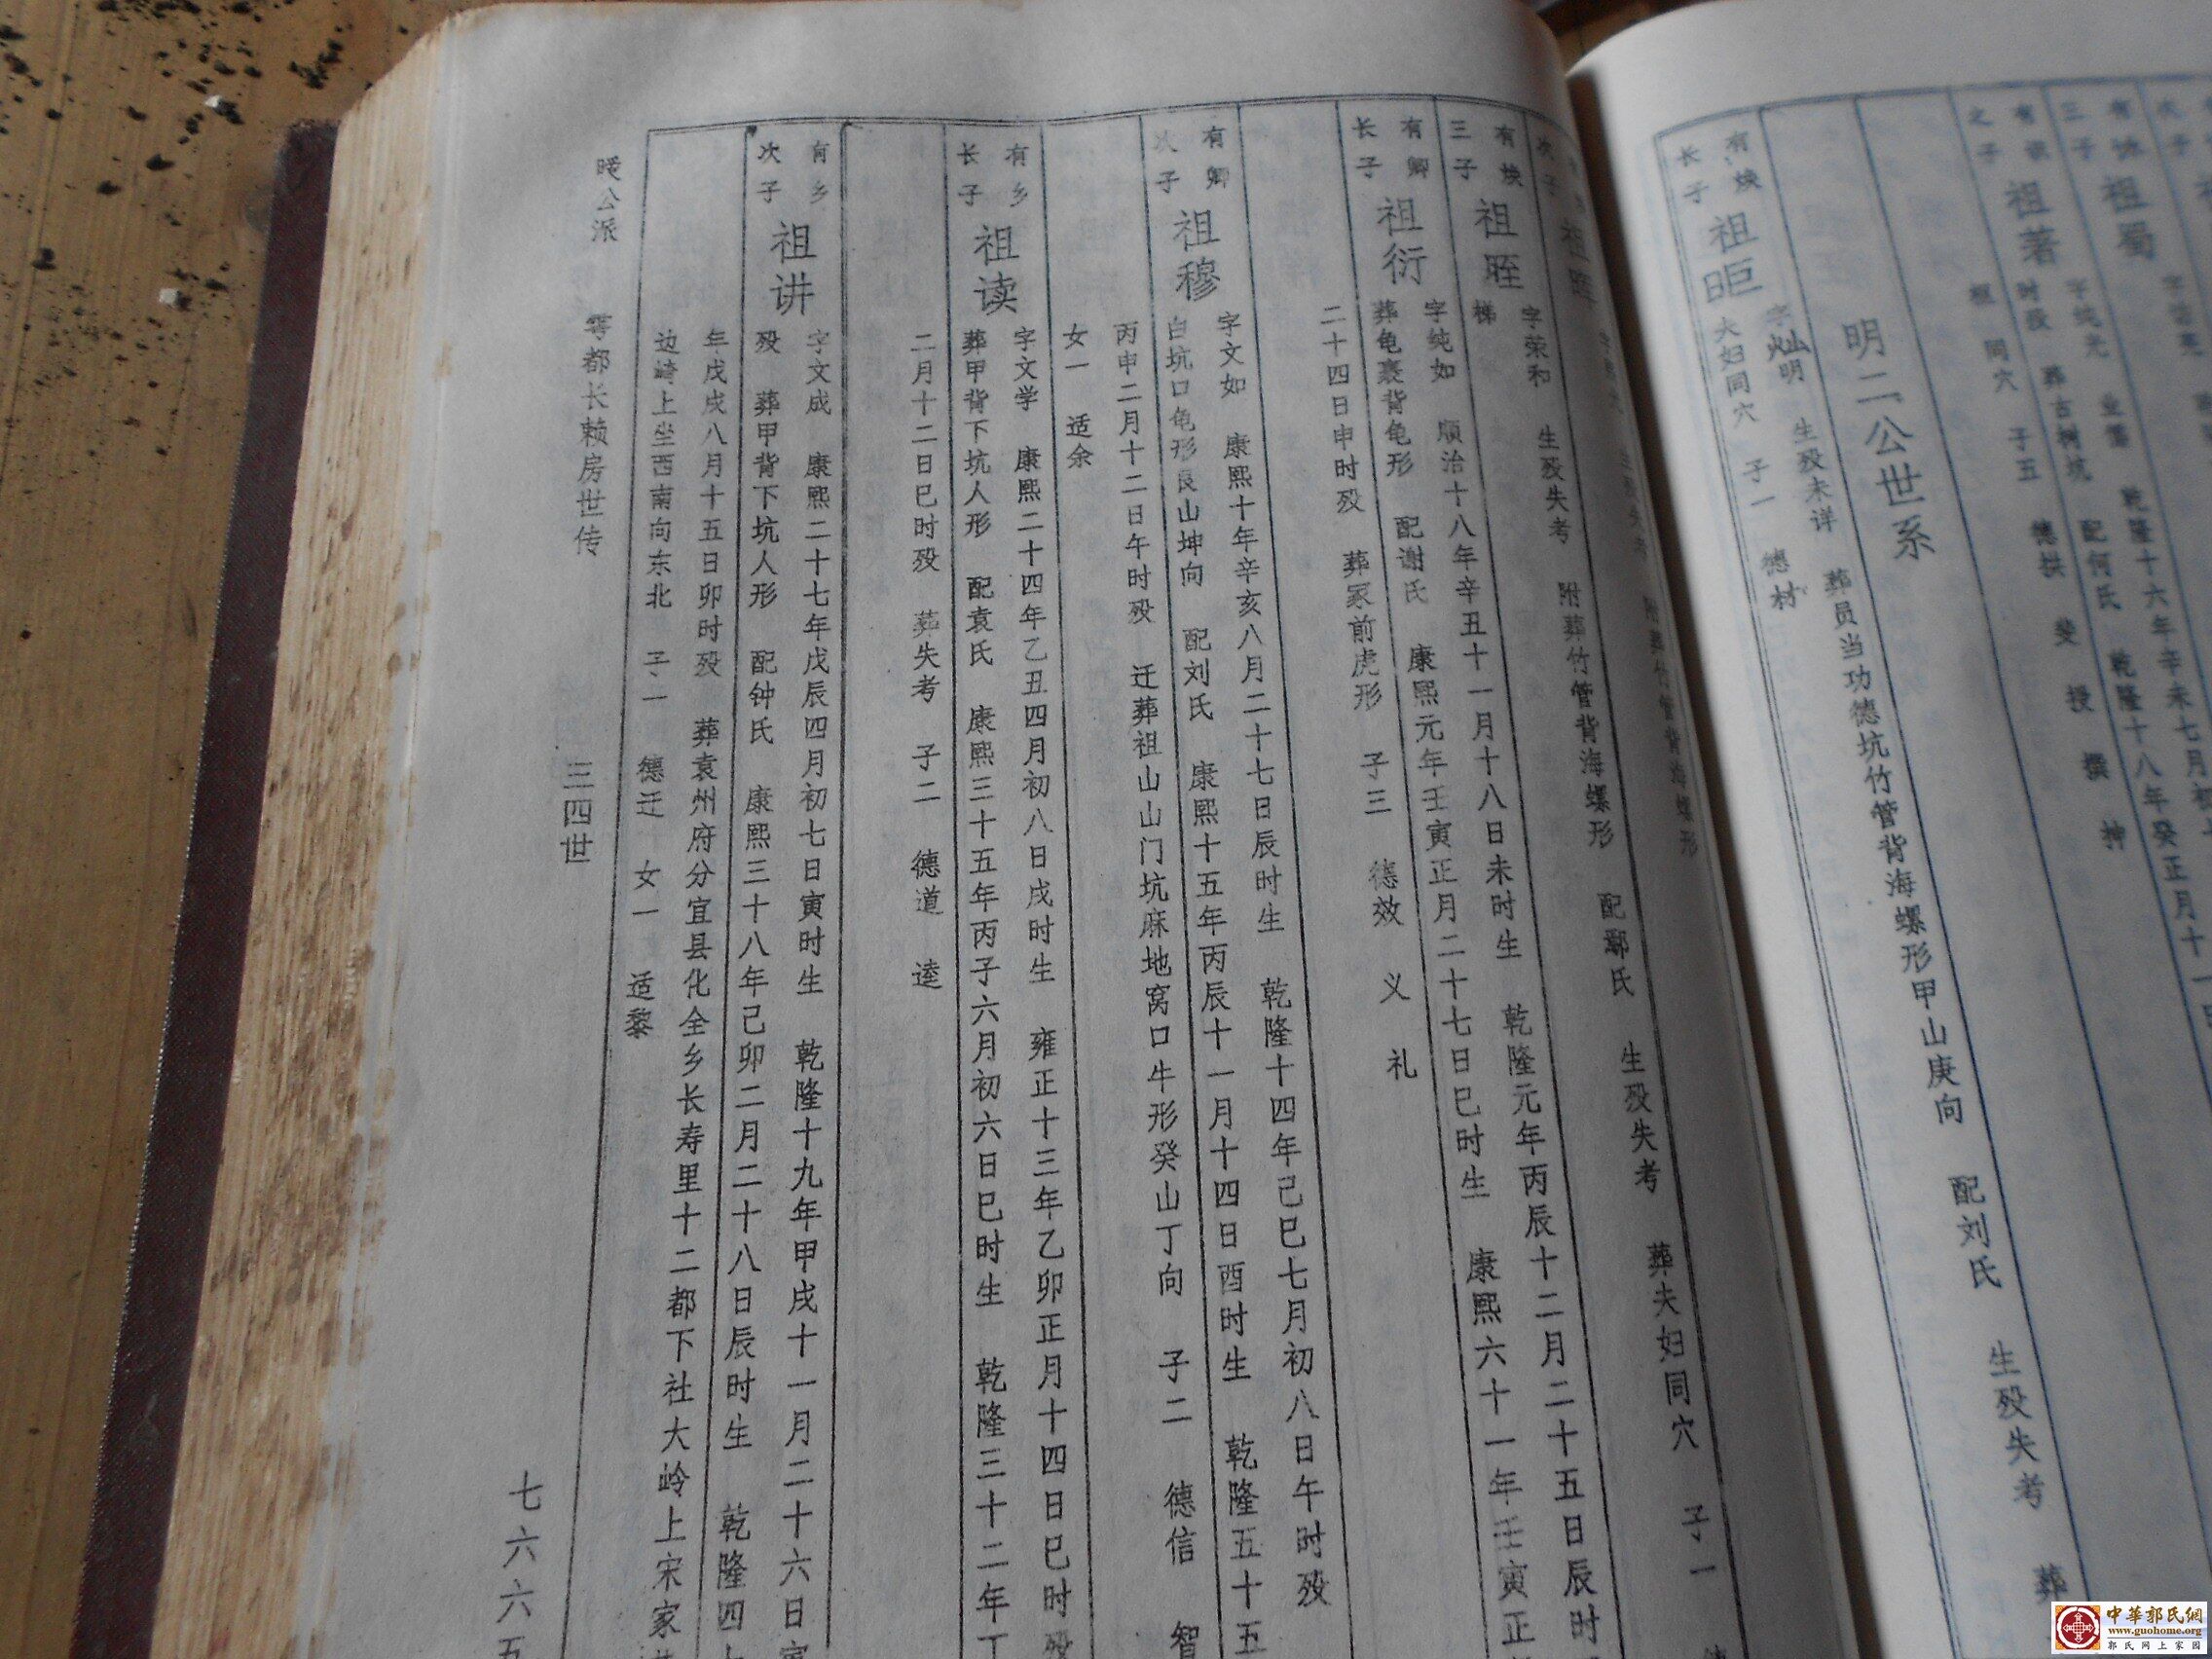 三子
有协
祖蜀
之子
祖著
时殁 葬古树坑 配何氏 乾隆十八年癸正月十一
祖 同穴 子五 德拱
明二公世系
有焕
长子
祖昛
字灿明 生殁未详 葬员当功德坑竹管背海螺形甲山庚向 配刘氏 生殁失考 葬
大妇同穴 子一 德材
次子
有焕
三子
祖晊
字荣和 生殁失考 附葬竹管背海螺形 配鄢氏 生殁失考 葬夫妇同穴 子一
有卿
长子
祖衍
字纯如 顺治十八年辛丑十一月十八日未时生 乾隆元年丙辰十二月二十五日辰时
葬龟裹背龟形 配谢氏 康熙元年壬寅正月二十七日巳时生 康熙六十一年壬寅正
二十四日申时殁 葬家前虎形 子三 德效 义 礼
有卿
次子
祖穆
字文如 康熙十年辛亥八月二十七日辰时生 乾隆十四年己巳七月初八日午时殁
白坑口龟形艮山坤向 配刘氏 康熙十五年丙辰十一月十四日酉时生 乾隆五十五
丙申二月十二日午时殁 迁葬祖山山门坑麻地窝口牛形癸山丁向 子二 德信 智
女一 适余
有乡
长子
祖读
字文学 康熙二十四年乙丑四月初八日戌时生 雍正十三年乙卯正月十四日巳时殁
葬甲背下坑人形 配袁氏 康熙三十五年丙子六月初六日巳时生 乾隆三十二年丁
二月十二日巳时殁 葬失考 子二 德道 逵
有乡
次子
祖讲
字文成 康熙二十七年戊辰四月初七日寅时生 乾隆十九年甲戌十一月二十六日寅
殁 葬甲背下坑人形 配钟氏 康熙三十八年己卯二月二十八日辰时生 乾隆四十
年戊戌八月十五日卯时殁 葬袁州府分宜县化全乡长寿里十二都下社大岭上宋家
边崎上坐西南向东北 子一 德迁 女一 适黎
暖公派 雩都长赖房世传 三四世 七六六五
中華郭氏網
www.guohome.org
郭氏网上家园